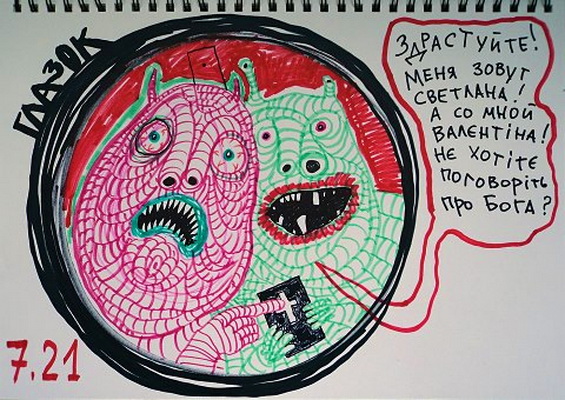 ГЛАЗОК
ЗДРАСТУЙТЕ!
МЕНЯ ЗОВУТ
СВЕТЛАНА!
А СО МНОЙ
ВАЛЕНТІНА!
НЕ ХОТІТЕ
ПОГОВОРІТЬ
ПРО БОГА?
7.21